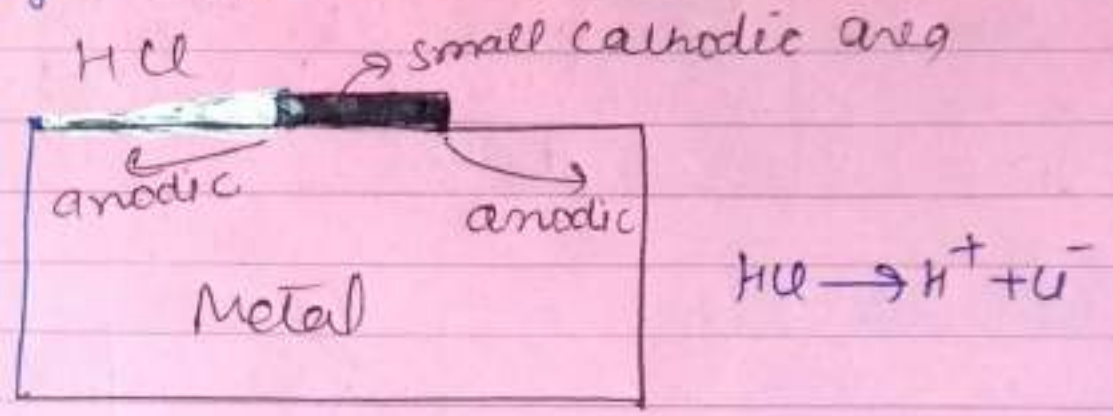 HCl
small cathodic area
anodic
anodic
Metal
HCl → H⁺ + Cl⁻